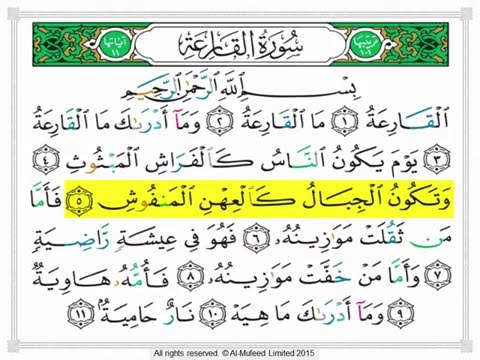 ترتيبها ١٠١ سُورَةُ الْقَارِعَةِ آياتها ١١
بِسْمِ اللَّهِ الرَّحْمَٰنِ الرَّحِيمِ
الْقَارِعَةُ ١ مَا الْقَارِعَةُ ٢ وَمَا أَدْرَىٰكَ مَا الْقَارِعَةُ
٣ يَوْمَ يَكُونُ النَّاسُ كَالْفَرَاشِ الْمَبْثُوثِ ٤
وَتَكُونُ الْجِبَالُ كَالْعِهْنِ الْمَنفُوشِ ٥ فَأَمَّا
مَن ثَقُلَتْ مَوَٰزِينُهُۥ ٦ فَهُوَ فِي عِيشَةٍ رَّاضِيَةٍ
٧ وَأَمَّا مَنْ خَفَّتْ مَوَٰزِينُهُۥ ٨ فَأُمُّهُۥ هَاوِيَةٌ
٩ وَمَا أَدْرَىٰكَ مَا هِيَهْ ١٠ نَارٌ حَامِيَةٌ ١١
All rights reserved. © Al-Mufeed Limited 2015